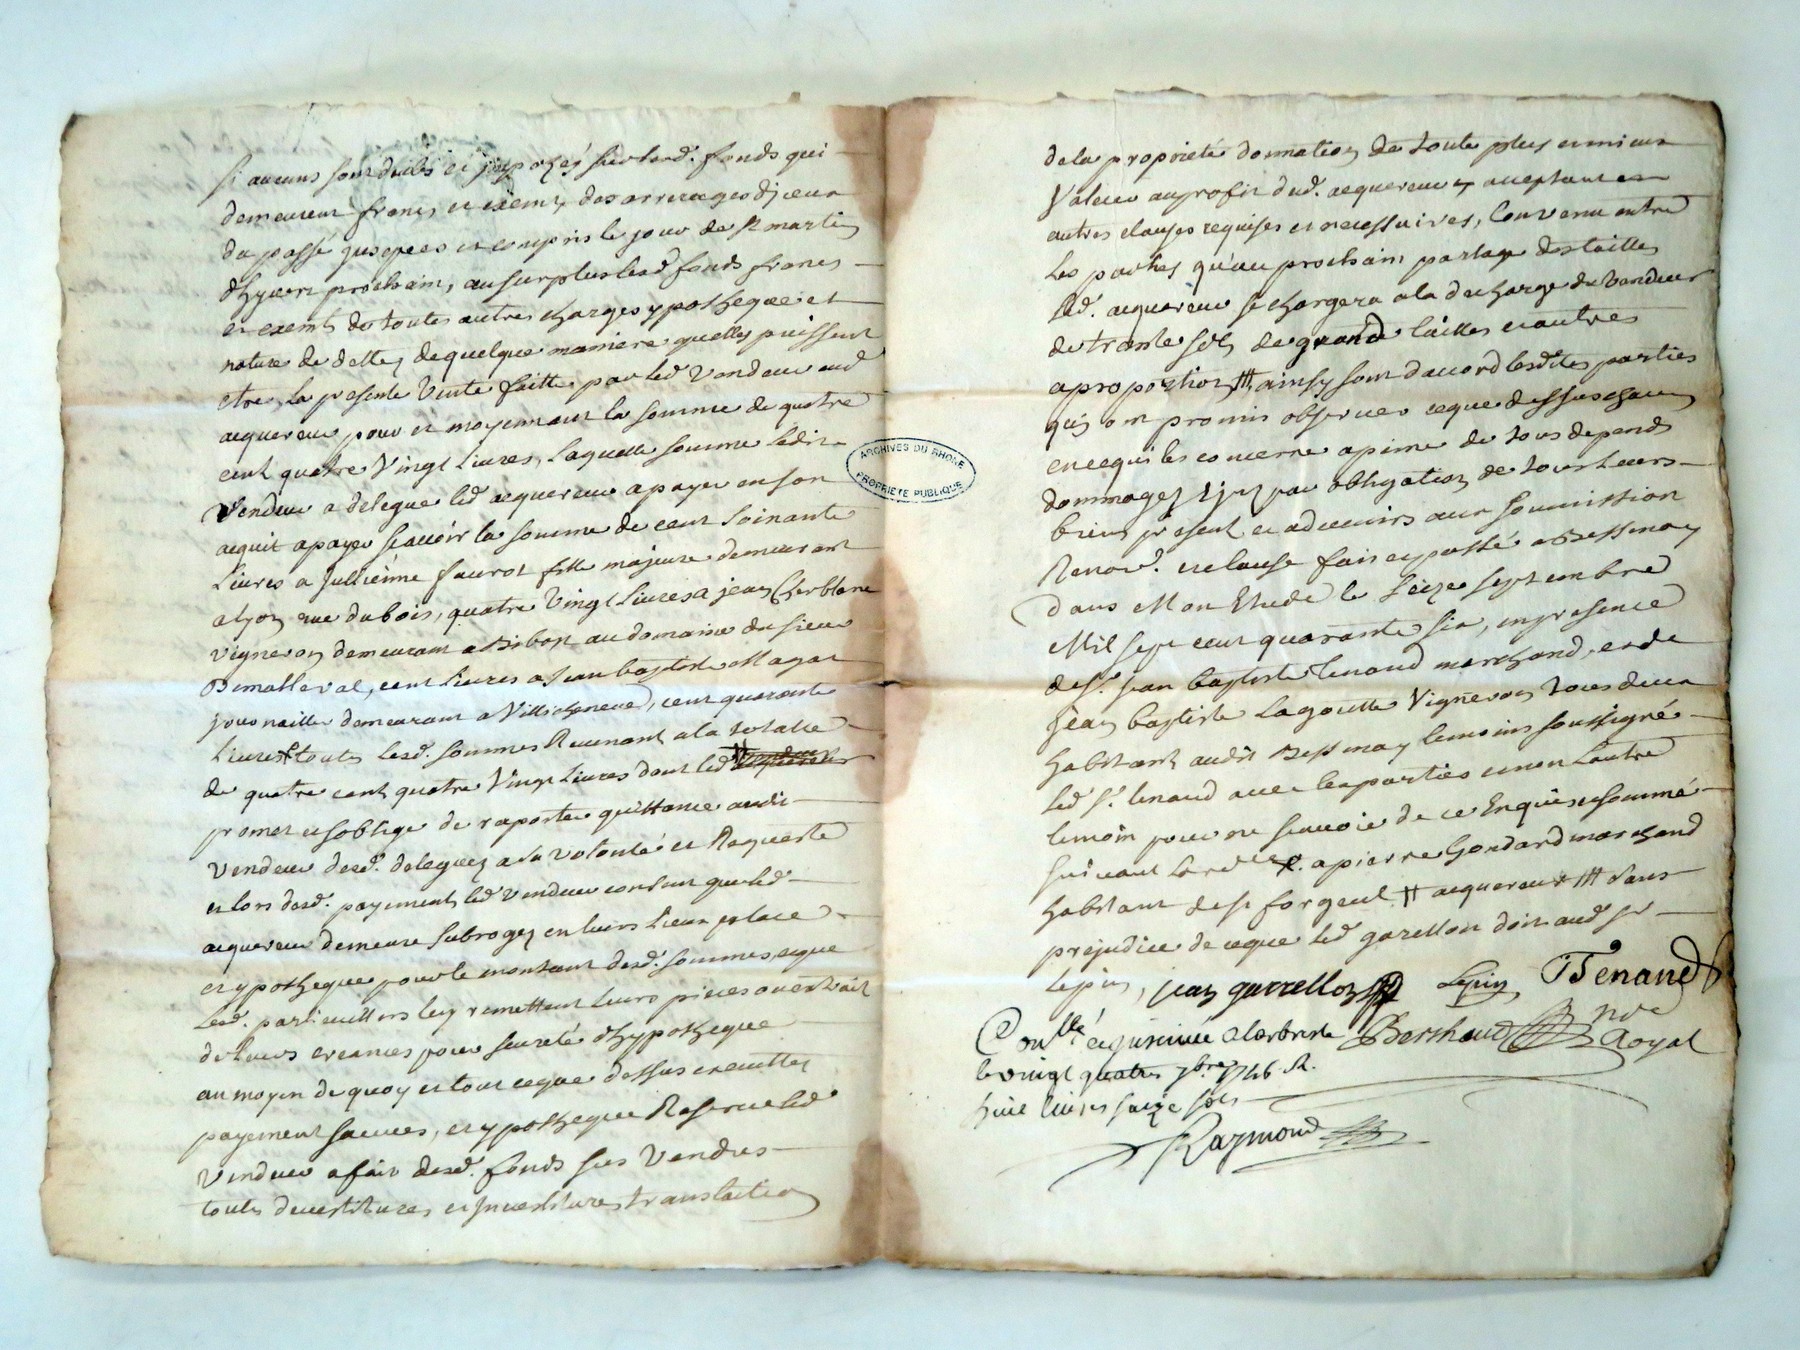 si aucuns sont deubs et imposés sur lesd. fonds qui
demeurent francs et exempt des arrerages diceux
du passé jusques et compris le jour de st martin
dhyvert prochain, au surplus lesd fonds francs
et exempts de toutes autres charges ypotheque et
nature de dettes de quelque maniere quelles puissent
etre, la presente vente faitte par led vendeur aud
acquereur pour et moyennant la somme de quatre
cent quatre vingt livres, laquelle somme ledit
vendeur a delegué led acquereur a payer en son
acquit a payer sçavoir la somme de cent soixante
livres a Jullienne faurot fille majeure demeurant
a lyon rue du bois, quatre vingt livres a jean Cherblanc
vigneron demeurant a Bibost au domaine du sieur
Demalleval, cent livres a Jean baptiste Magat
journaillier demeurant a Villecheneve, cent quarante
livres toutes lesd. sommes Revenant a la totalle
de quatre cent quatre vingt livres dont led
promet et soblige de raporter quittance audit
vendeur desd. deleguez a sa volonté et Requeste
et lors desd. payements led vendeur consent que led
acquereur demeure subrogez en leurs lieux place
et ypotheque pour le montant desd. sommes, et que
lesd. particulliers luy remettent leurs pieces ou extrait
de leurs creances pour seureté dhypotheque
au moyen de quoy et tout ce que dessus
payement sauves, et ypotheque Reservé led
vendeur a fait desd. fonds sus vendus
toutes devestitures et Investitures translation
de la proprieté donnation de toute plus ou mieux
valeur au profit dud. acquereur acceptant
autres clauses requises et necessaires, Convenu entre
les parties qu'au prochain partage des tailles
led. acquereur se chargera a la decharge du vendeur
de trante sols de grande tailles et autres
a proportion # ainsy sont d'accord lesdites parties
qu'ils ont promis observer ce que dessus chacun
en ce qui les concerne a peine de tous depends
dommages par obligation de tous leurs
biens present et advenirs aux soumission
Renon. et clause fait et passé a Bessenay
dans Mon Etude le seize septembre
Mil sept cent quarante six, en presence
de sr. jean baptiste Tenaud marchand, et de
jean baptiste Lagoutte vigneron tous deux
habitant audit Bessenay temoins soussigné
led sr. tenaud avec les parties et non l'autre
temoin pour ne sçavoir de ce Enquis et sommé
suivant l'ord a pierre Gondard marchand
habitant de st forgeul # acquereur # sans
prejudice de ce que led garellon doit aud sr
Lepin, jean garrellon Lepin JBTenaud
Conllé et insinué a larbresle Berthaud nre Royal
le vingt quatre 7bre 1746 R.
huit livres saize sols
Raymond
ARCHIVES DU RHONE
PROPRIETE PUBLIQUE